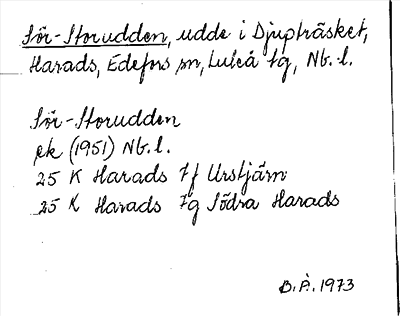 Sör-Storudden, udde i Djupträsket,
Harads, Edefors sn, Luleå tg, Nb. l.
Sör-Storudden
ek (1951) Nb. l.
25 K Harads 7f Urstjärn
25 K Harads 7g Södra Harads
B.Å. 1973